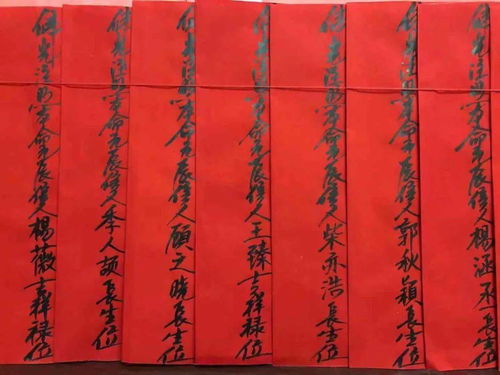 佛光注照本命元辰信人楊涵丞長生位
佛光注照本命元辰信人郭秋穎長生位
佛光注照本命元辰信人柴亦浩長生位
佛光注照本命元辰信人王臻吉祥祿位
佛光注照本命元辰信人顧文曉長生位
佛光注照本命元辰信人季人長生位
佛光注照本命元辰信人楊薇吉祥祿位